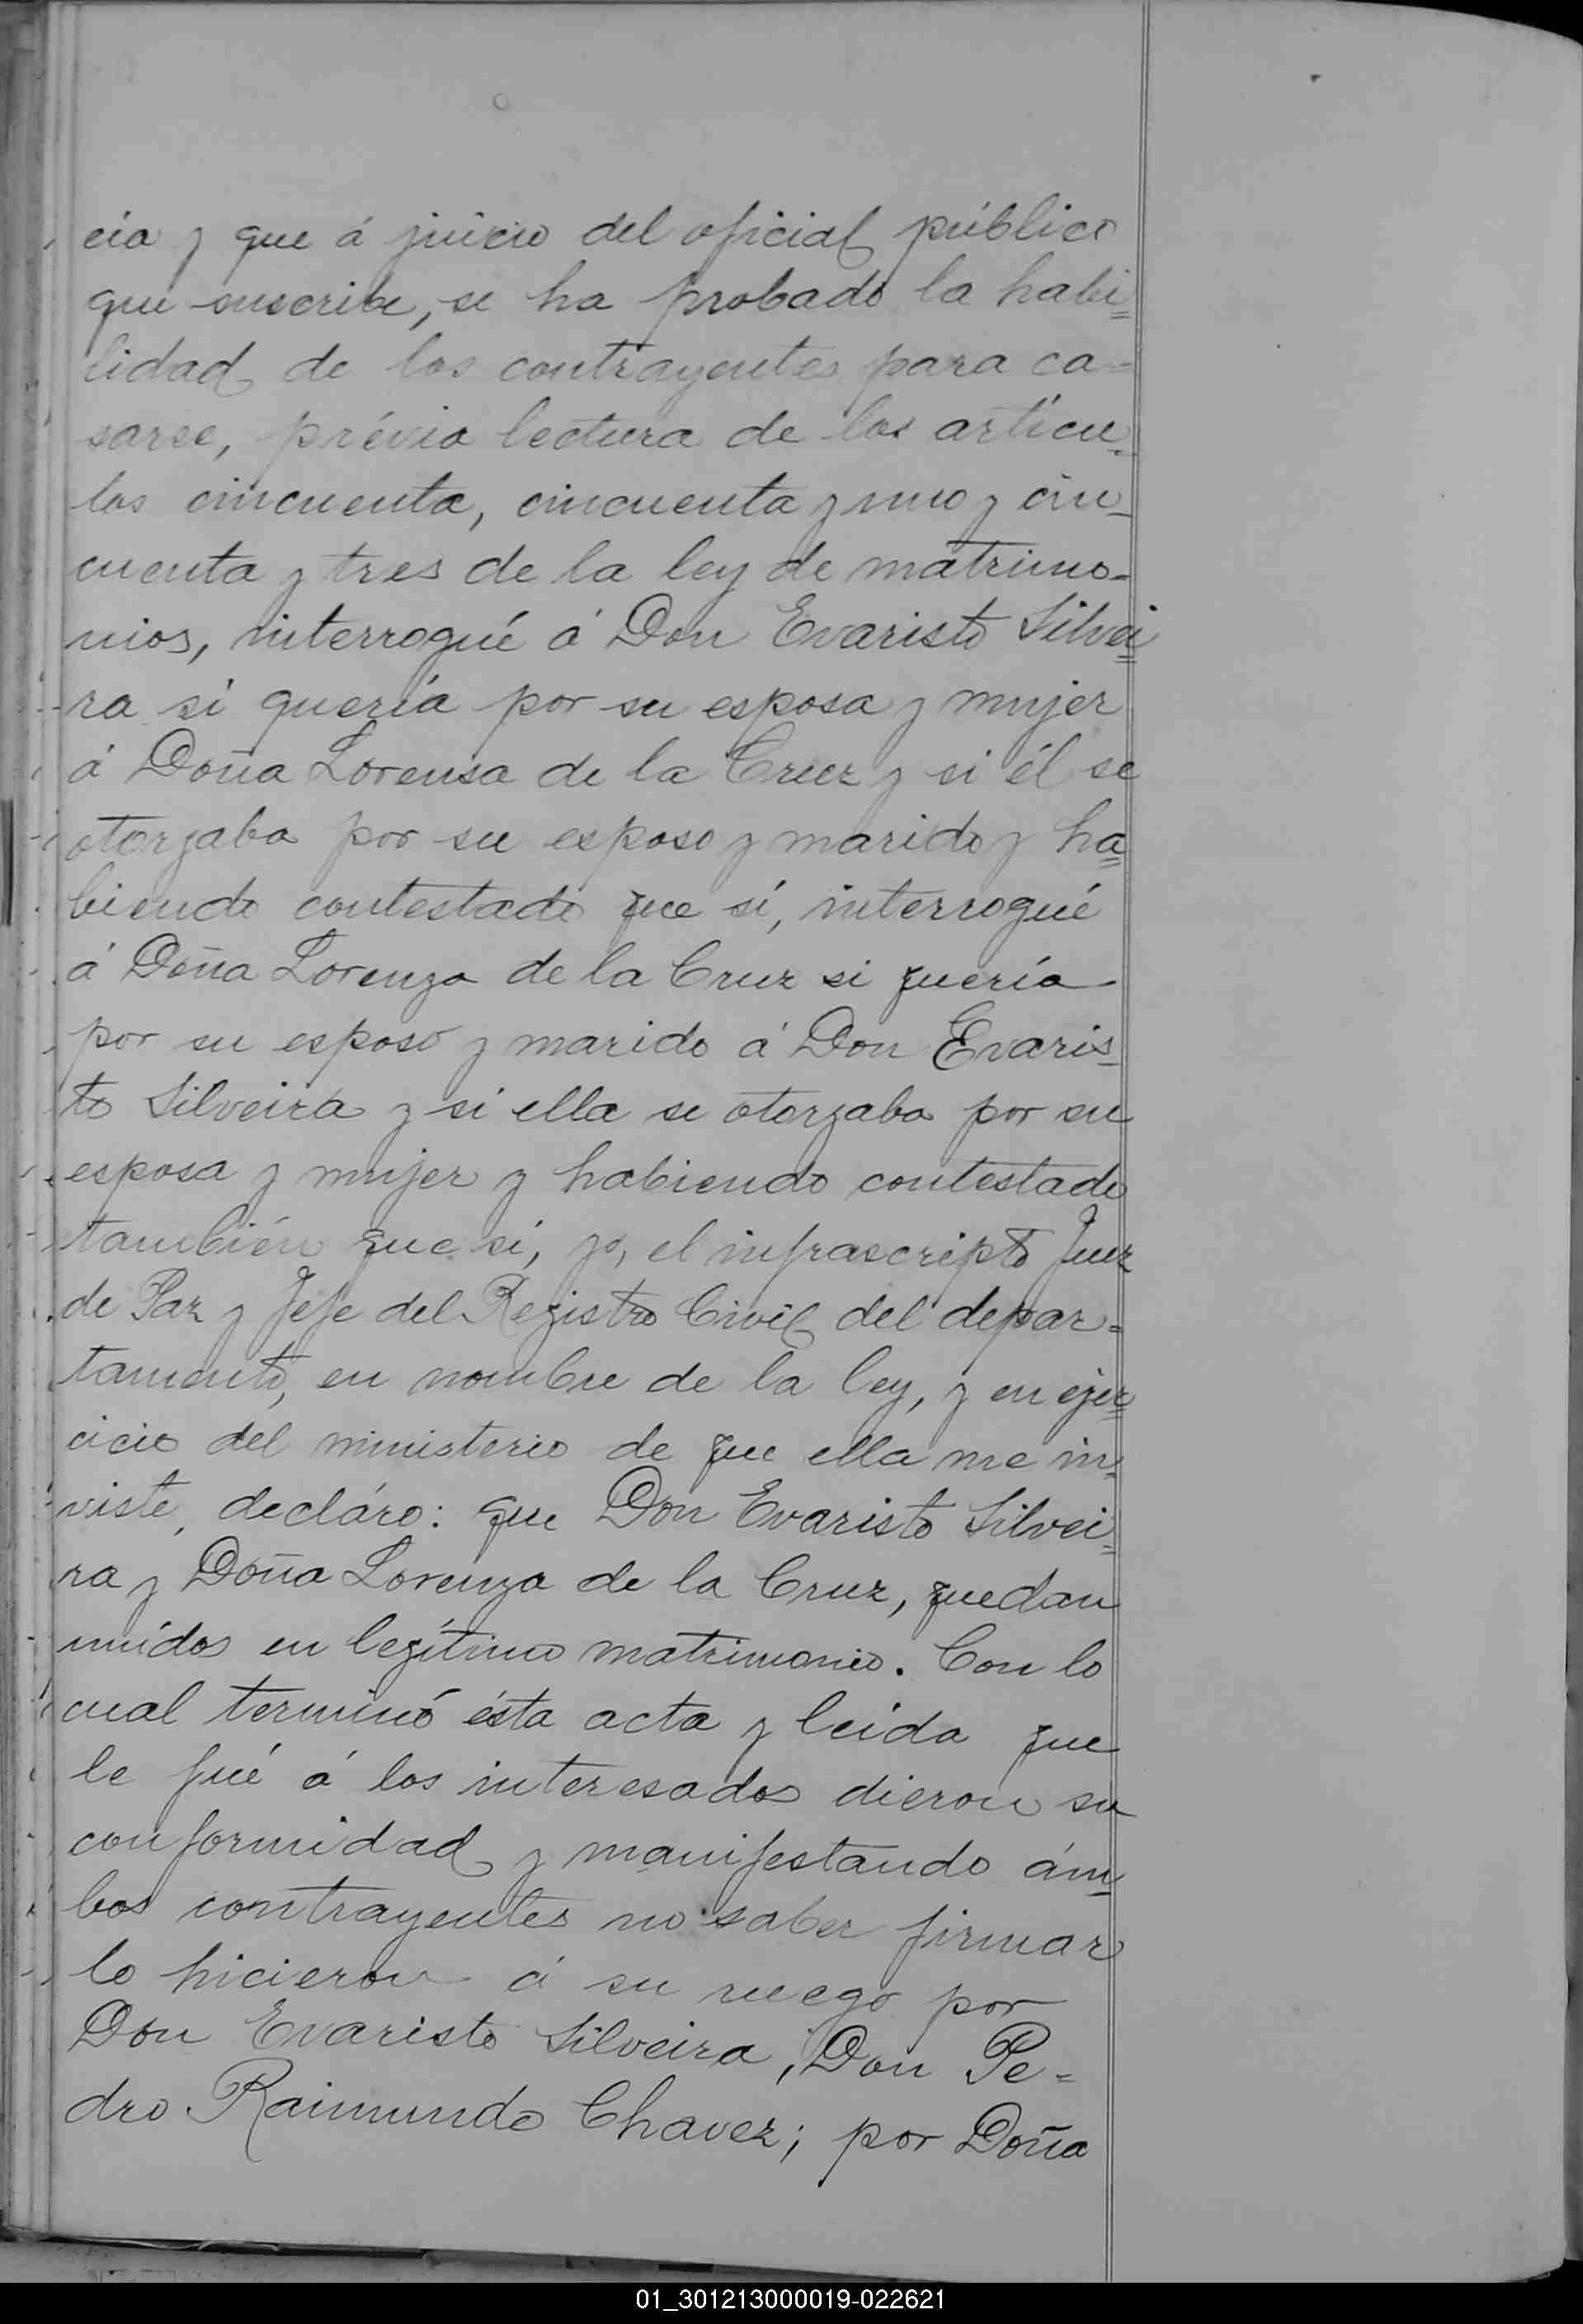 cia y que á juicio del oficial público
que suscribe, se ha probado la habi=
lidad de los contrayentes para ca=
sarse, prévia lectura de los artícu=
los cincuenta, cincuenta y uno y cin-
cuenta y tres de la ley de matrimo-
nios, interrogué á Don Evaristo Silvei=
ra si quería por su esposa y mujer
á Doña Lorensa de la Cruz y si él se
otorgaba por su esposo y marido y ha=
biendo contestado que sí, interrogué
á Doña Lorenza de la Cruz si quería
por su esposo y marido á Don Evaris-
to Silveira y si ella se otorgaba por su
esposa y mujer y habiendo contestado
también que sí, yo, el infrascripto Juez
de Paz y Jefe del Registro Civil del depar=
tamento, en nombre de la ley, y en ejer=
cicio del ministerio de que ella me in=
viste, decláro: que Don Evaristo Silvei=
ra y Doña Lorenza de la Cruz, quedan
unidos en legítimo matrimonio. Con lo
cual terminó ésta acta y leida que
le fué á los interesados dieron su
conformidad y manifestando ám-
bos contrayentes no saber firmar
lo hicieron á su ruego por
Don Evaristo Silveira, Don Pe=
dro Raimundo Chavez; por Doña
01_301213000019-022621